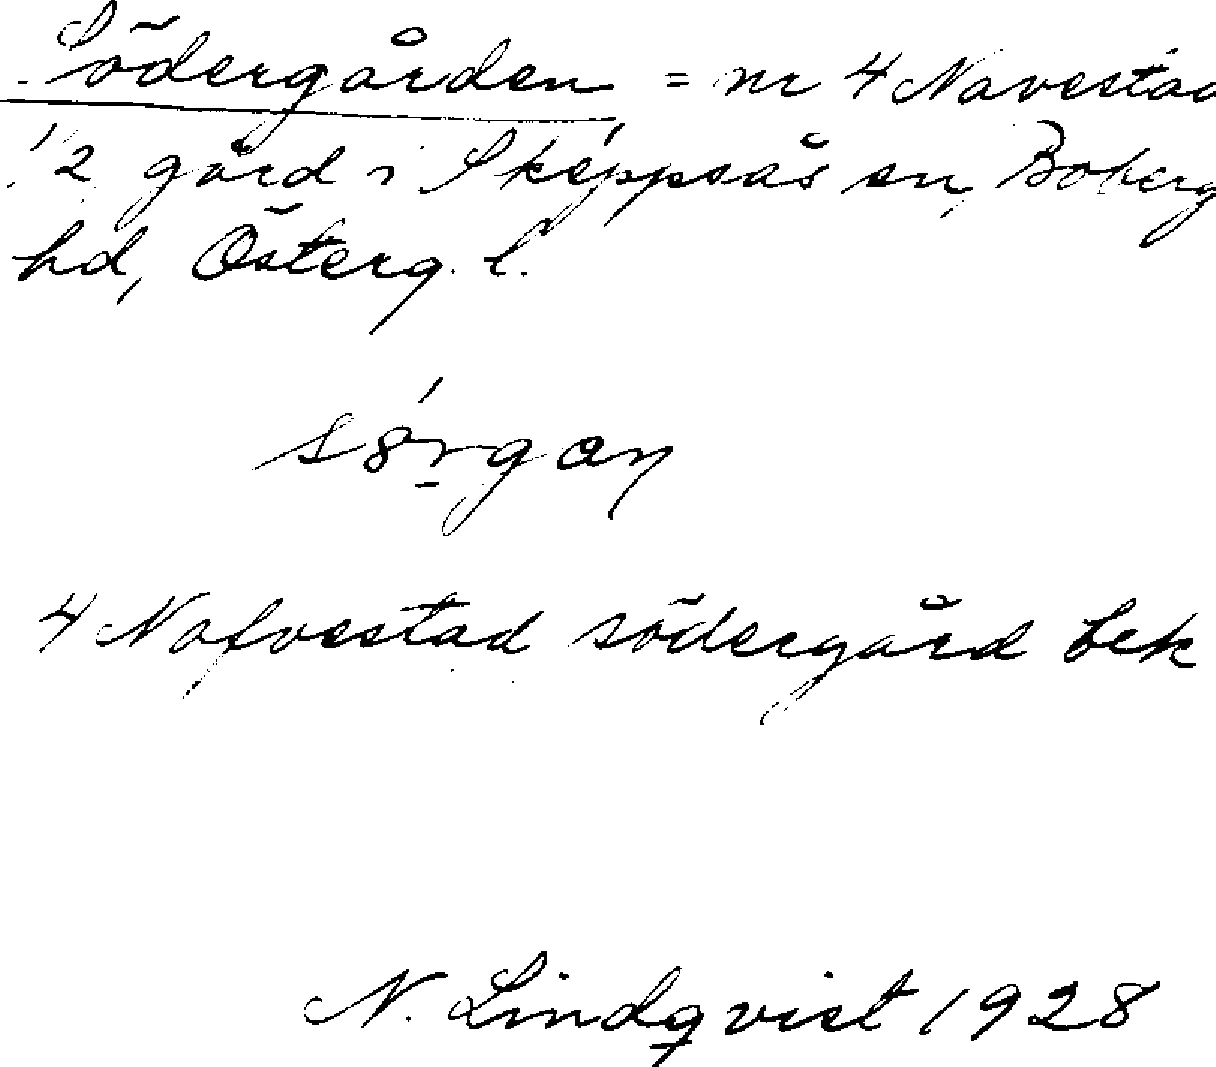 Södergården = nr 4 Navestad
1/2 gård i Skeppsås sn, Boberg
hd, Österg. l.
4 Nafvestad södergård bek
N. Lindqvist 1928